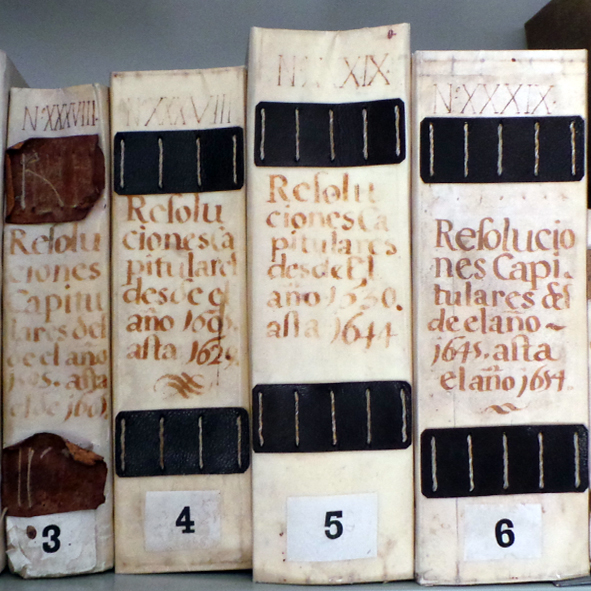 N.XXXVIII.
Resolu
ciones
Capitu
lares del
de el año
asta
el de
3
N.XXXVIII
Resolu
ciones Ca
pitulares
desde el
año
asta 1629.
4
XIX.
Resolu
ciones Ca
pitulares
desde El
año 1630.
asta 1644
5
N.XXXIX.
Resolucio
nes Capi.
tulares des
de el año ~
1645. asta
el año 1654.
6